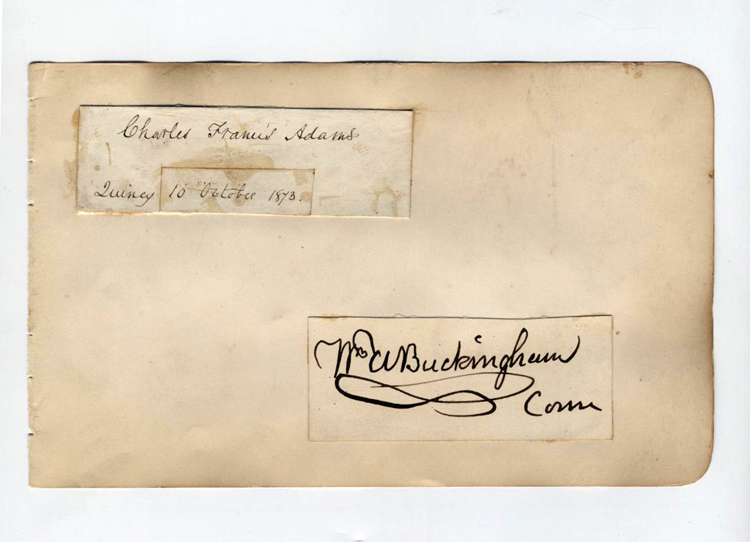 Charles Francis Adams
Quincy 10 October 1873.
Wm A Buckingham
Conn